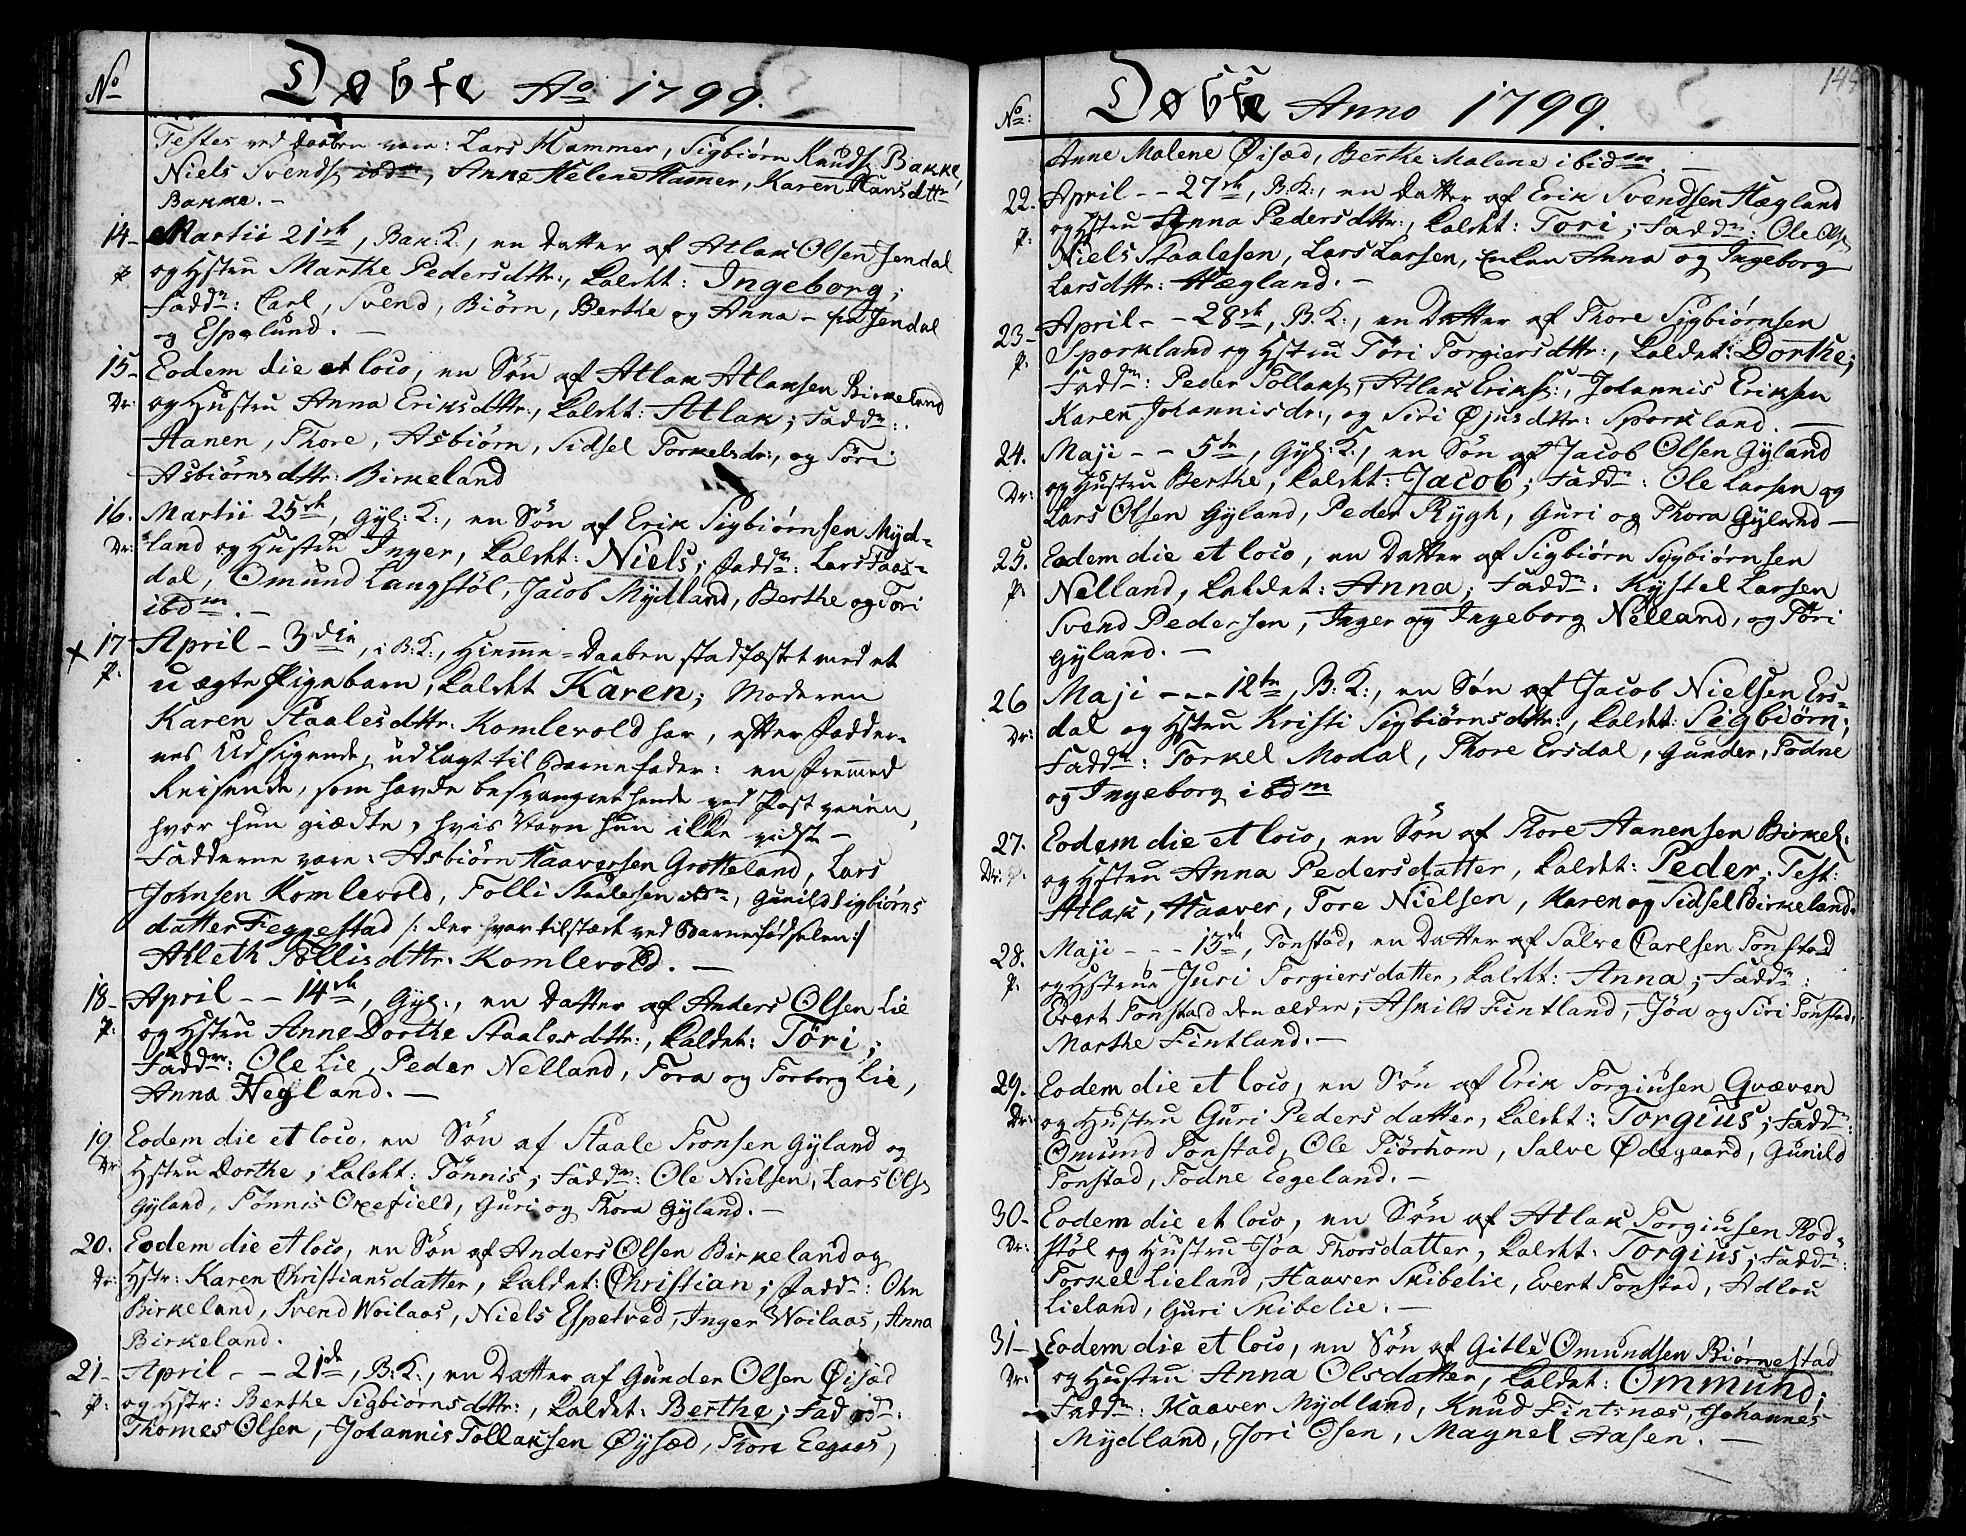 No Døbte Ao 1799.
Testes ved Daaben vare: Lars Hammer, Sigbiørn Knuds: Bakke,
Niels Svends: ibdm, Anne Helene Hamer, Karen Hansdttr
Bakke. –
14– Martii 21de, Bak: K:, en Datter af Atlak Olsen Jendal
p og Hstru Marthe Pedersdttr:, kaldet: Ingeborg;
Faddn: Carl, Svend, Biørn, Berthe og Anna – fra Jendal
og Espelund. –
15– Eodem die et loco, en Søn af Atlak Atlaksen Birkeland
Dr: og Hustru Anna Eriksdttr:, kaldet: Atlak; Faddn:
Aanen, Thore, Asbiørn, Sidsel Torkelsdr:, og Tøri
Asbiørnsdttr: Birkeland
16. Martii 25de, Gyl: K:, en Søn af Erik Sigbiørnsen Myd-
Dr: land og Hustru Inger, kaldet: Niels; Faddn: Lars Faas-
dal, Omund Langstøl, Jacob Mydland, Berthe og Tori
ibdm. –
x 17 April – 3die, i B: K:, Hiemme-Daaben stadfæstet med et
p. uægte Pigebarn, kaldet Karen; Moderen
Karen Staalesdttr: Komlevold har, efter Fadder-
nes Udsigende, udlagt til Barnefader: en fremmed
Reisende, som havde besvangret hende ved Postveien,
hvor hun giædte, hvis Navn hun ikke vidste –
Fadderne vare: Asbiørn Haaversen Grotteland, Lars
Johnsen Komlevold, Folli Staalesen ibdm, Gunild Sigbiørns
datter Feggestad /: der var tilstæde ved Barnefødselen :/
Atleth Tollisdttr. Komlevold. –
18– April – – 14de, Gyl:, en Datter af Anders Olsen Lie
p: og Hstru Anne Dorthe Staalesdttr:, kaldet: Töri;
Faddn: Ole Lie, Peder Nelland, Tora og Torborg Lie,
Anna Hegland. –
19 Eodem die et loco, en Søn af Staale Tronsen Gyland og
Dr Hstru Dorthe, kaldet: Tönnis; Faddn: Ole Nielsen, Lars Ols:
Gyland, Tönnis Oxefield, Guri og Thora Gyland. –
20. Eodem die et loco, en Søn af Anders Olsen Birkeland og
Dr: Hstr: Karen Christiansdatter, kaldet: Christian; Faddn: Ole
Birkeland, Svend Woilaas, Niels Espetved, Inger Woilaas, Anna
Birkeland.
21– April – – 21de, B: K:, en Datter af Gunder Olsen Øisæd
p: og Hstr: Berthe Sigbiørnsdttr:, kaldet: Berthe; Faddn:
Thomes Olsen, Johannis Tollaksen Øysæd, Thore Eegaas,
No: Døbte Anno 1799.
Anne Malene Øisæd, Berthe Malene ibidm. –
22. April – – 27de, B: K:, en Datter af Erik Svendsen Hægland
p: og Hstru Anna Pedersdttr:, kaldet: Tori; Faddn: Ole Ols:
Niels Staalesen, Lars Larsen, Enken Anna og Ingeborg
Larsdttr: Hægland. –
23– April – – 28de, B: K:, en Datter af Thore Sigbiørnsen
p: Sporkland og Hstru Töri Torgiersdttr:, kaldet: Dorthe;
Faddn: Peder Tollaks:, Atlak Eriks:, Johannis Eriksen
Karen Johannisdr:, og Siri Øjusdttr: Sporkland. –
24. Maji – – 5te, Gyl: K:, en Søn af Jacob Olsen Gyland
Dr: og Hustru Berthe, kaldet: Jacob; Faddn: Ole Larsen og
Lars Olsen Gyland, Peder Rygh, Guri og Thora Gyland –
25. Eodem die et loco, en Datter af Sigbiørn Sigbiørnsen
p: Nelland, kaldet: Anna; Faddn: Kystel Larsen
Svend Pedersen, Inger og Ingeborg Nelland, og Töri
Gyland. –
26 Maji – – – 12te, B: K:, en Søn af Jacob Nielsen Ers-
Dr: dal og Hstru Kristi Sigbiørnsdttr:, kaldet: Sigbiørn;
Faddn: Torkel Modal, Thore Ersdal, Gunder, Todne
og Ingeborg ibdm
27. Eodem die et loco, en Søn af Thore Aanensen Birkel:
Dr: og Hstru Anna Pedersdatter, kaldet: Peder; Test:
Atlak, Haaver, Tore Nielsen, Karen og Sidsel Birkeland.
28. Maji – – – 13de, Tonstad, en Datter af Salve Carlsen Tonstad
p: og Hstrue Juri Torgiersdatter, kaldet: Anna; Faddn:
Evert Tonstad den ældre, Askild Fintland, Jöa og Siri Tonstad,
Marthe Fintland. –
29. Eodem die et loco, en Søn af Erik Torgiusen Qvæven
Dr: og Hustru Guri Pedersdatter, kaldet: Torgius; Faddn:
Omund Tonstad, Ole Tiörhom, Salve Ødegaard, Gunild
Tonstad, Todne Eegeland. –
30– Eodem die et loco, en Søn af Atlak Torgiusen Rod-
Dr: støl og Hustru Jöa Thorsdatter, kaldet: Torgius; Faddn:
Torkel Lieland, Haaver Skibelie, Evert Tonstad, Adlou
Lieland, Guri Skibelie. –
31– Eodem die et loco, en Søn af Gitle Omundsen Biørnestad
Dr: og Hustru Anna Olsdatter, kaldet: Ommund;
Faddn: Haaver Mydland, Knud Fintsnæs, Johannes
Mydland, Jori Osen, Magnel Aasen. –